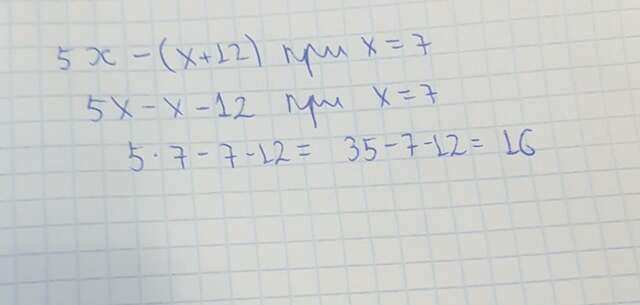 5x - (x+12) при x = 7
5x - x - 12 при x = 7
5 · 7 - 7 - 12 = 35 - 7 - 12 = 16